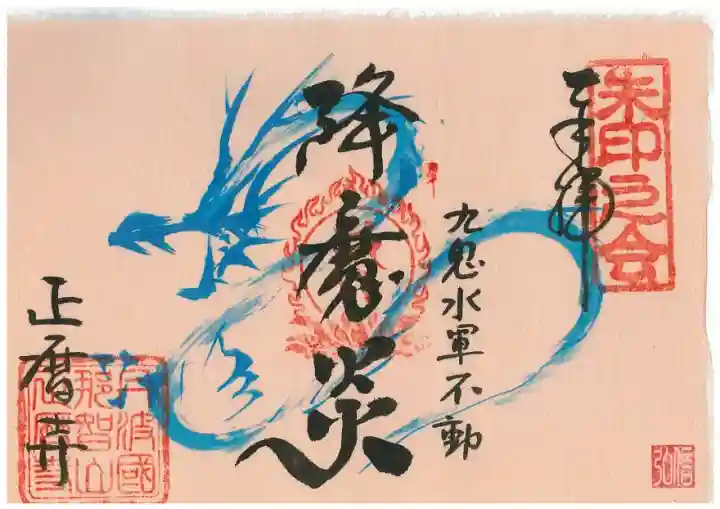 奉拝
朱印之会
降魔炎
九鬼水軍不動
正暦寺
丹波國
那智山
正暦寺